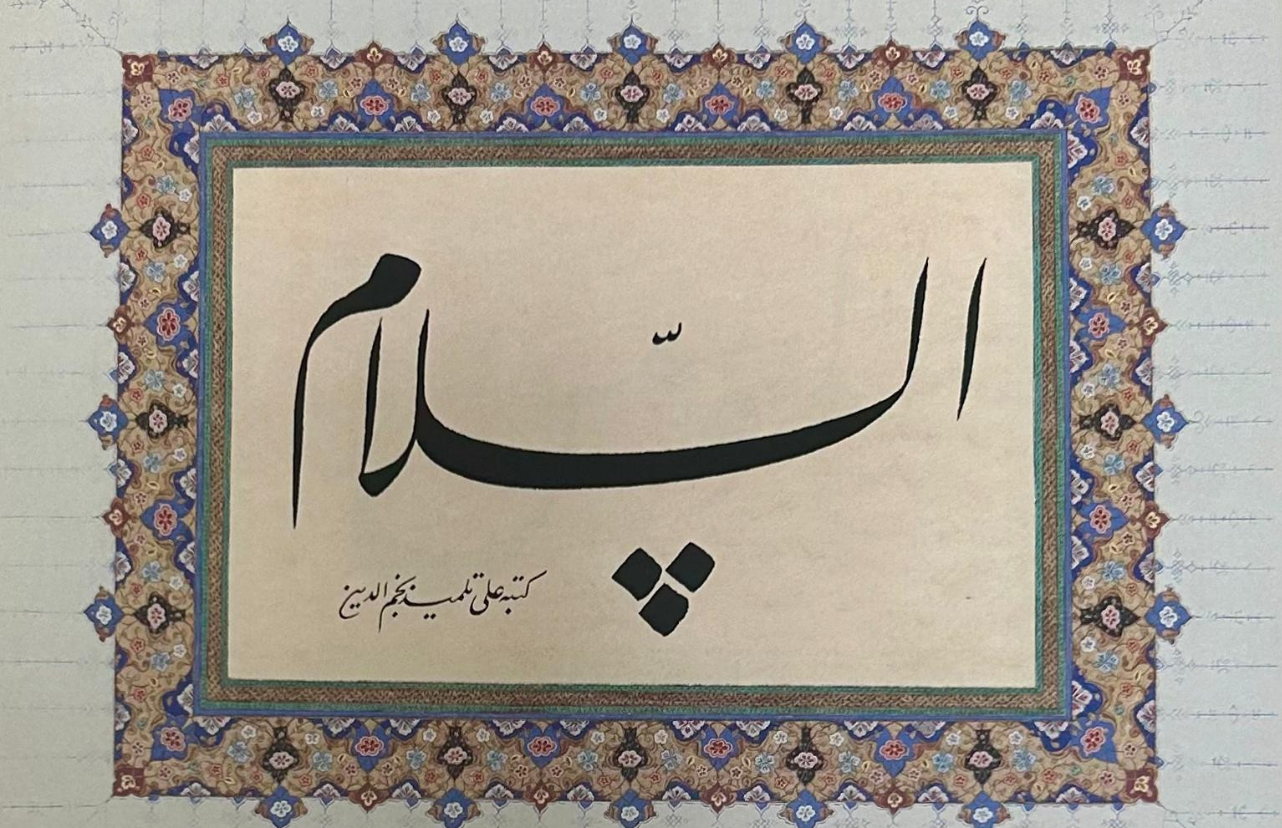 السّلام
كتبه علي تلميذ نجم الدين